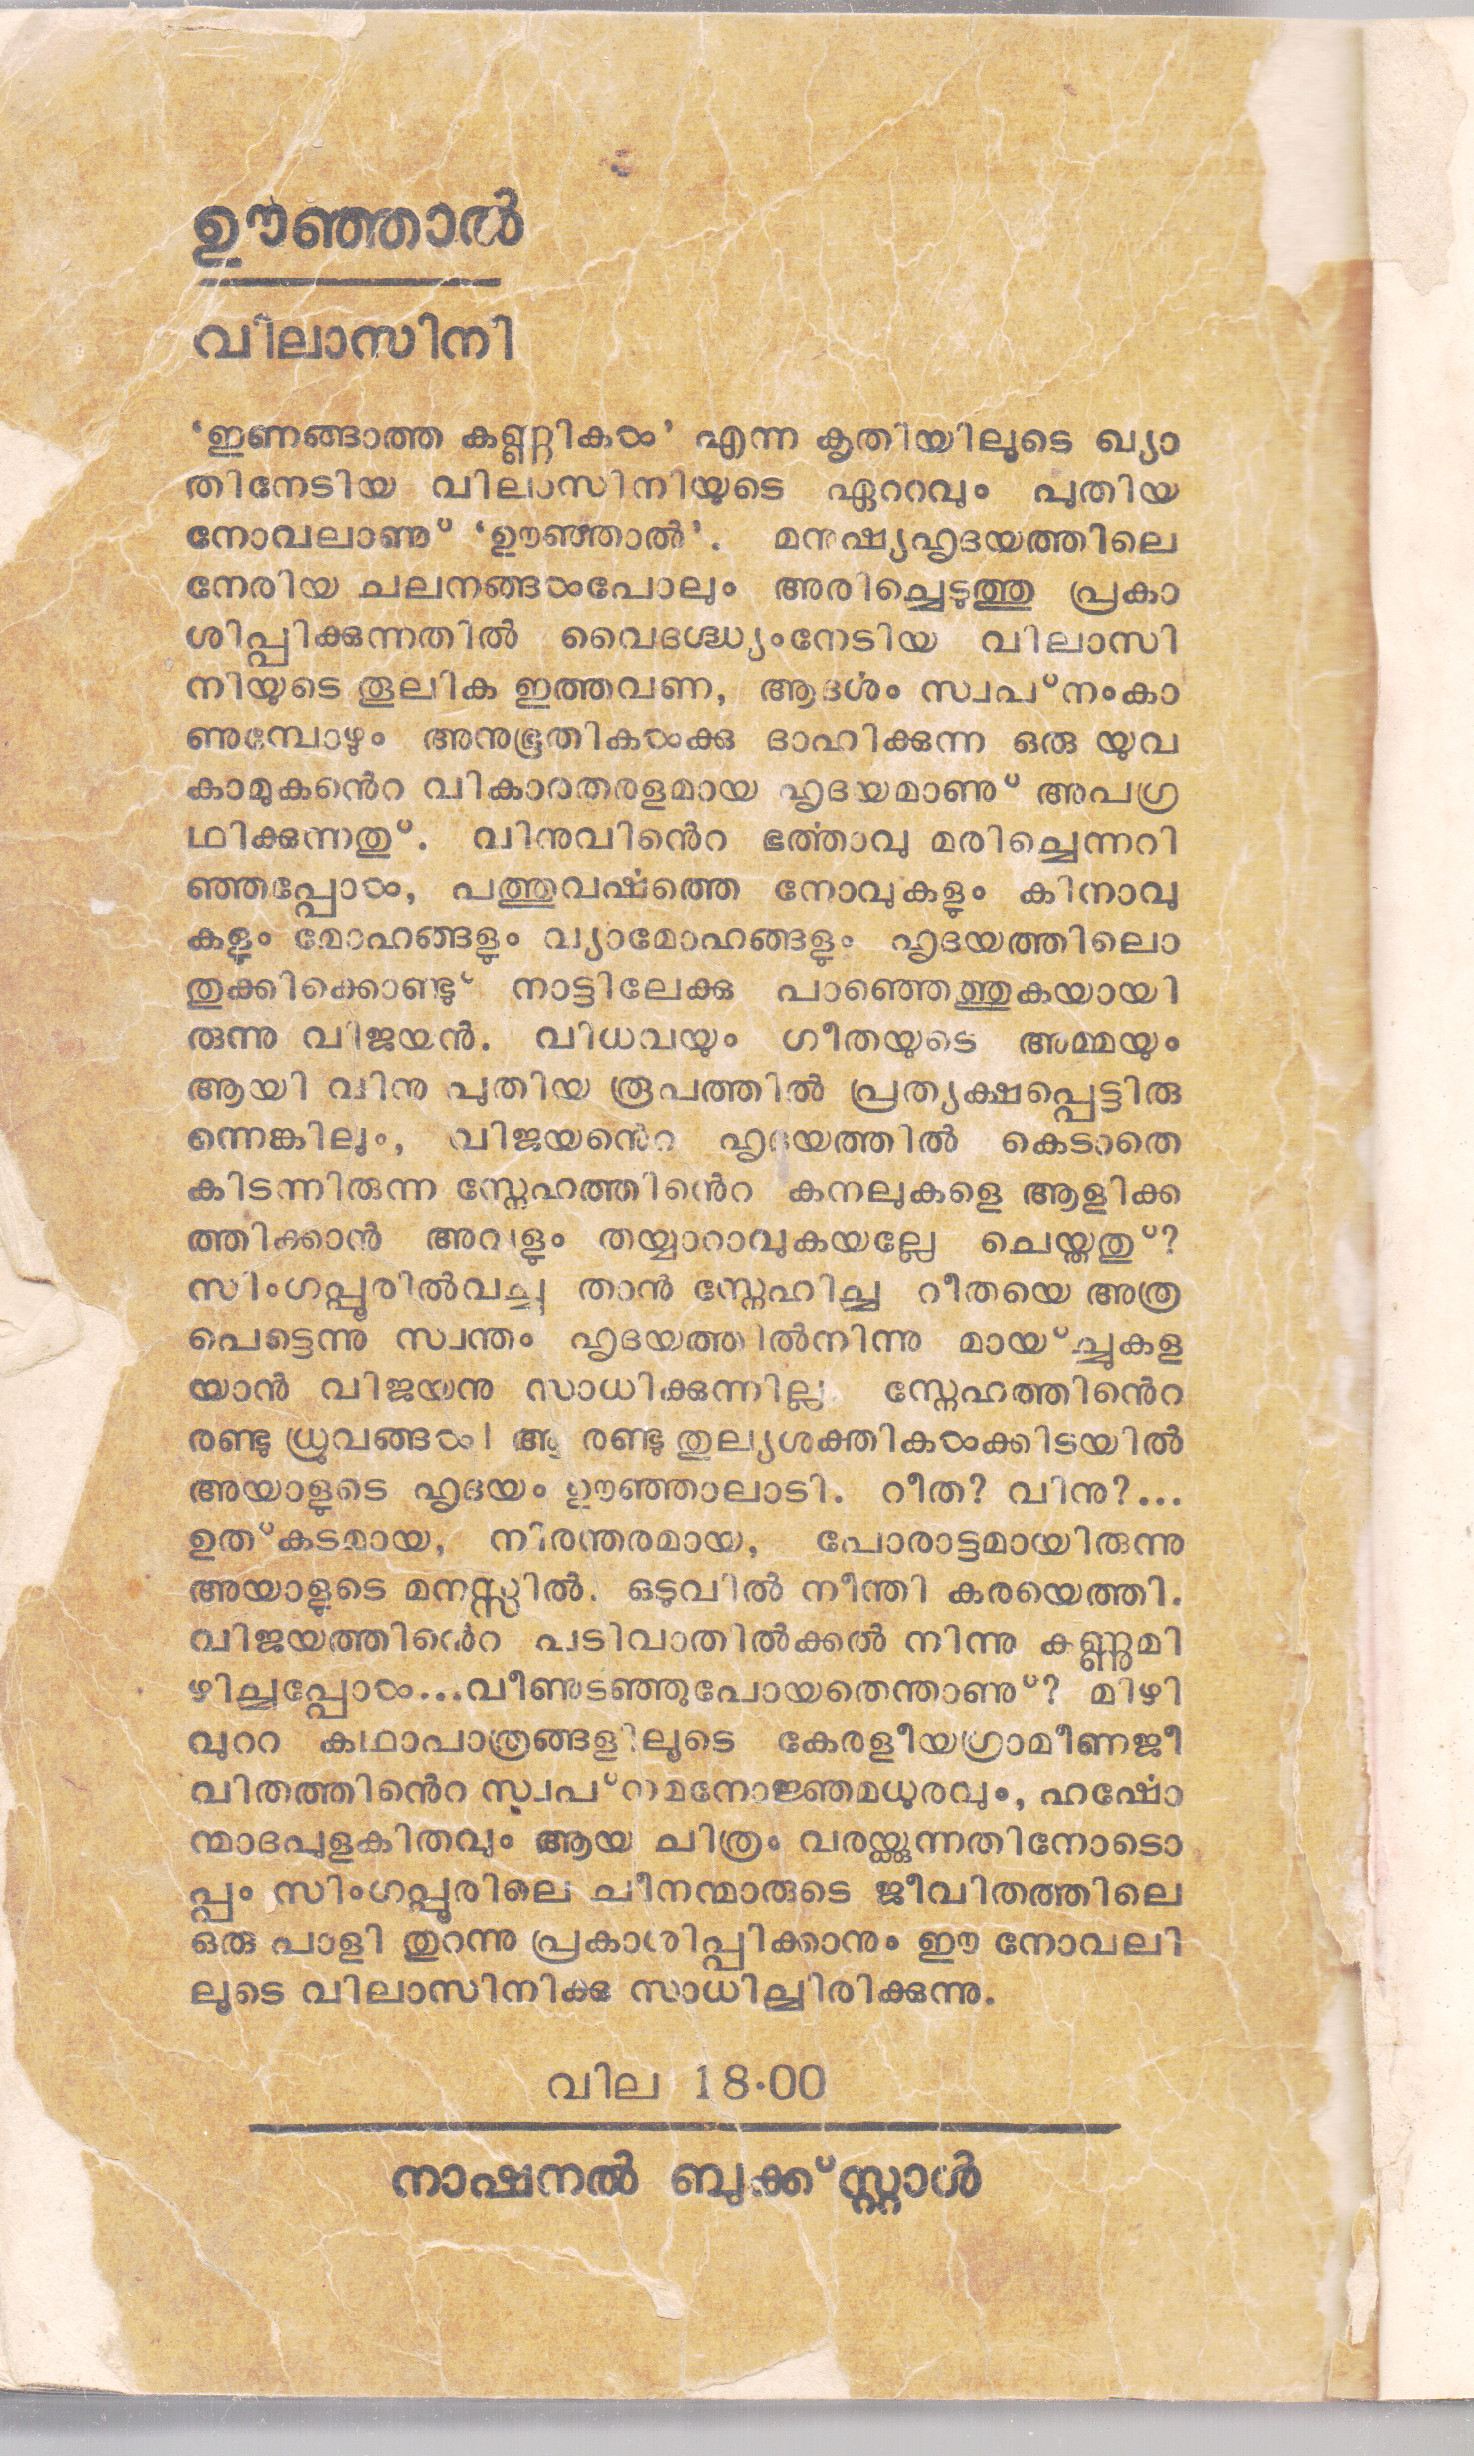 ഊഞ്ഞാൽ
വിലാസിനി
‘ഇണങ്ങാത്ത കണ്ണികൾ’ എന്ന കൃതിയിലൂടെ ഖ്യാ
തിനേടിയ വിലാസിനിയുടെ ഏററവും പുതിയ
നോവലാണു് ‘ഊഞ്ഞാൽ’. മനുഷ്യഹൃദയത്തിലെ
നേരിയ ചലനങ്ങൾപോലും അരിച്ചെടുത്തു പ്രകാ
ശിപ്പിക്കുന്നതിൽ വൈദഗ്ദ്ധ്യംനേടിയ വിലാസി
നിയുടെ തൂലിക ഇത്തവണ, ആദൎശം സ്വപ്നംകാ
ണുമ്പോഴും അനുഭൂതികൾക്കു ദാഹിക്കുന്ന ഒരു യുവ
കാമുകൻെറ വികാരതരളമായ ഹൃദയമാണു് അപഗ്ര
ഥിക്കുന്നതു്. വിനുവിൻെറ ഭൎത്താവു മരിച്ചെന്നറി
ഞ്ഞപ്പോൾ, പത്തുവൎഷത്തെ നോവുകളും കിനാവു
കളും മോഹങ്ങളും വ്യാമോഹങ്ങളും ഹൃദയത്തിലൊ
തുക്കിക്കൊണ്ടു് നാട്ടിലേക്കു പാഞ്ഞെത്തുകയായി
രുന്നു വിജയൻ. വിധവയും ഗീതയുടെ അമ്മയും
ആയി വിനു പുതിയ രൂപത്തിൽ പ്രത്യക്ഷപ്പെട്ടിരു
ന്നെങ്കിലും, വിജയൻെറ ഹൃദയത്തിൽ കെടാതെ
കിടന്നിരുന്ന സ്നേഹത്തിൻെറ കനലുകളെ ആളിക്ക
ത്തിക്കാൻ അവളും തയ്യാറാവുകയല്ലേ ചെയ്തതു്?
സിംഗപ്പൂരിൽവച്ചു താൻ സ്നേഹിച്ച റീതയെ അത്ര
പെട്ടെന്നു സ്വന്തം ഹൃദയത്തിൽനിന്നു മായ്ച്ചുകള
യാൻ വിജയനു സാധിക്കുന്നില്ല. സ്നേഹത്തിൻെറ
രണ്ടു ധ്രുവങ്ങൾ! ആ രണ്ടു തുല്യശക്തികൾക്കിടയിൽ
അയാളുടെ ഹൃദയം ഊഞ്ഞാലാടി. റീത? വിനു?...
ഉത്കടമായ, നിരന്തരമായ, പോരാട്ടമായിരുന്നു
അയാളുടെ മനസ്സിൽ. ഒടുവിൽ നീന്തി കരയെത്തി.
വിജയത്തിൻെറ പടിവാതിൽക്കൽ നിന്നു കണ്ണുമി
ഴിച്ചപ്പോൾ...വീണുടഞ്ഞുപോയതെന്താണു്? മിഴി
വുററ കഥാപാത്രങ്ങളിലൂടെ കേരളീയഗ്രാമീണജീ
വിതത്തിൻെറ സ്വപ്നമനോജ്ഞമധുരവും, ഹൎഷോ
ന്മാദപുളകിതവും ആയ ചിത്രം വരയ്ക്കുന്നതിനോടൊ
പ്പം സിംഗപ്പൂരിലെ ചീനന്മാരുടെ ജീവിതത്തിലെ
ഒരു പാളി തുറന്നു പ്രകാശിപ്പിക്കാനും ഈ നോവലി
ലൂടെ വിലാസിനിക്കു സാധിച്ചിരിക്കുന്നു.
വില 18·00
നാഷനൽ ബുക്ക്സ്റ്റാൾ